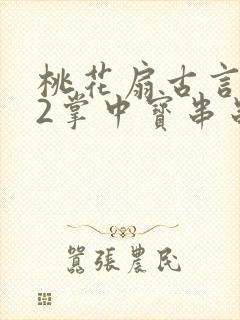 桃花扇古言
2掌中寳串
囂張農民